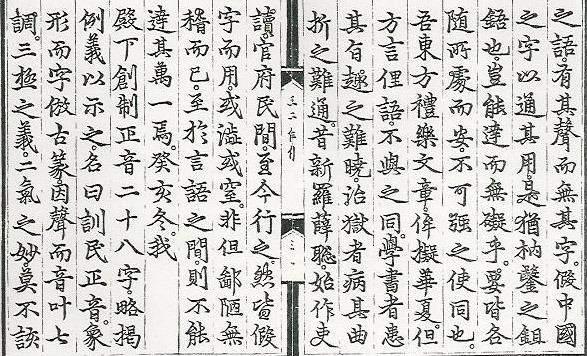 之語。有其聲而無其字。假中國
之字以通其用。是猶枘鑿之鉏
鋙也。豈能達而無礙乎。要皆各
随所處而安。不可强之使同也。
吾東方禮樂文章。侔擬華夏。但
方言俚語。不與之同。學書者患
其旨趣之難曉。治獄者病其曲
折之難通。昔新羅薛聰。始作吏
讀。官府民間。至今行之。然皆假
字而用。或澁或窒。非但鄙陋無
稽而已。至於言語之間。則不能
達其萬一焉。癸亥冬。我
殿下創制正音二十八字。略揭
例義以示之。名曰訓民正音。象
形而字倣古篆。因聲而音叶七
調。三極之義。二氣之妙。莫不該